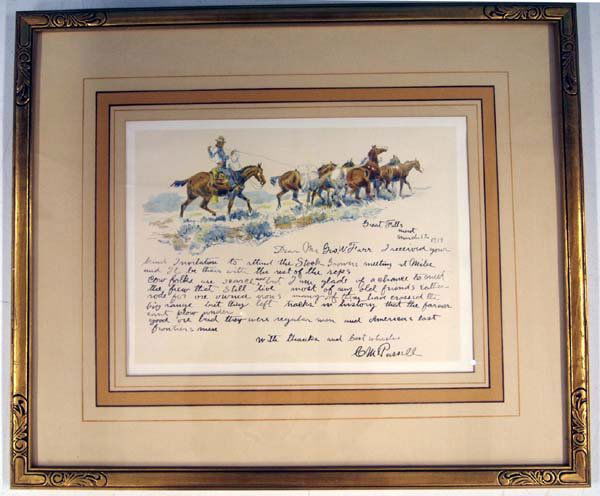 Great Falls
Mont
March 12 1919
Dear Mr Geo W Farr I received your
kind Invitation to attend the Stock Growers meeting at Miles
and Il be their with the rest of the reps
cow folks are scarce now but I am glade of a chance to meet
the few that still live most of my old friends
rode for ore owned irons many of them have crossed the
big range but they left tracks in history that the farmer
cant plow under
good ore bad they were regular men and Americas last
frontier men
with thanks and best wishes
C M Russell